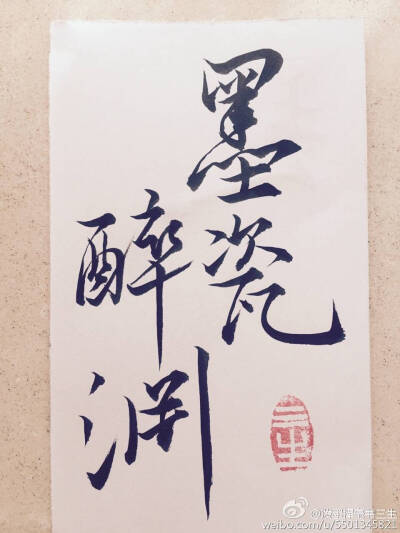 墨瓷
醉渊
三生
weibo.com/u/5501345821